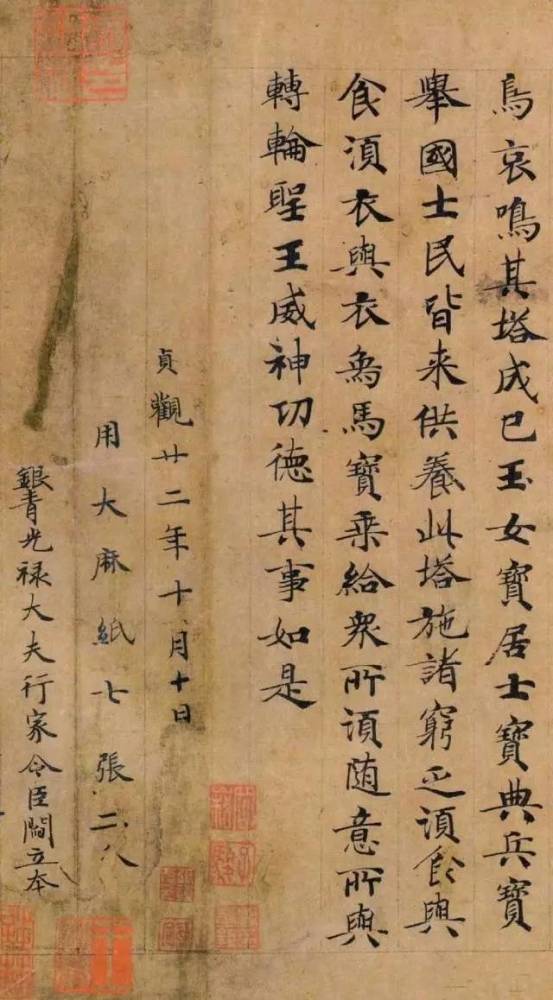 鳥哀鳴其塔成已玉女寶居士寶典兵寶
舉國士民皆来供養此塔施諸窮乏湏食與
食湏衣與衣象馬寶乗給衆所湏随意所與
轉輪聖王威神功德其事如是
貞觀廿二年十月十日
用大麻紙七張二分
銀青光禄大夫行家令臣閻立本